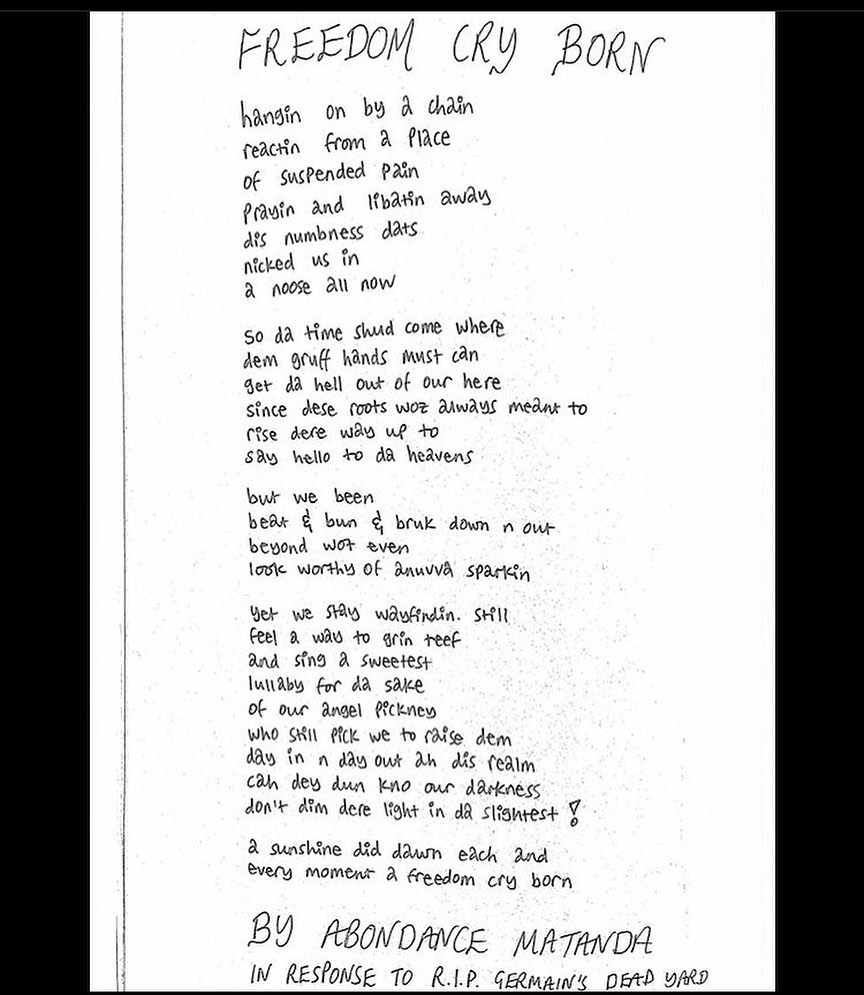 FREEDOM CRY BORN
hangin on by a chain
reactin from a place
of suspended pain
prayin and libatin away
dis numbness dats
nicked us in
a noose all now
so da time shud come where
dem gruff hands must can
get da hell out of our here
since dese roots woz always meant to
rise dere way up to
say hello to da heavens
but we been
beat & bun & bruk down n out
beyond wot even
look worthy of anuvva sparkin
yet we stay wayfindin. still
feel a way to grin teef
and sing a sweetest
lullaby for da sake
of our angel pickney
who still pick we to raise dem
day in n day out ah dis realm
cah dey dun kno our darkness
don't dim dere light in da slightest!
a sunshine did dawn each and
every moment a freedom cry born
BY ABONDANCE MATANDA
IN RESPONSE TO R.I.P. GERMAIN'S DEAD YARD